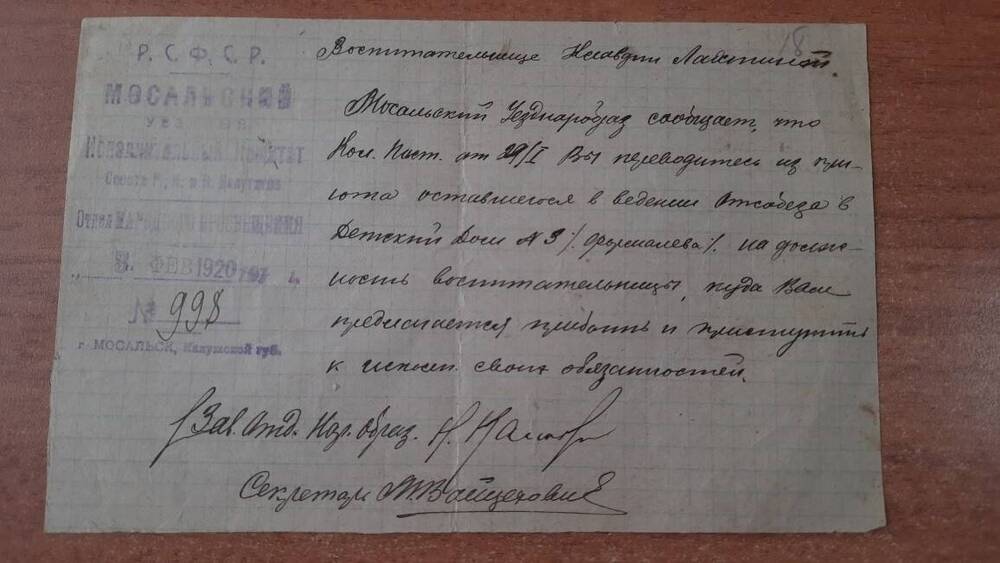 18
Р. С. Ф. С. Р.
МОСАЛЬСКИЙ
Исполнительный Комитет
Совета Р., К. и К. Депутатов
Отдел НАРОДНОГО ПРОСВЕЩЕНИЯ
3. ФЕВ 1920 г.
№ 998
г. МОСАЛЬСК, Калужской губ.
Воспитательнице Клавдии
Мосальский Уезднаробраз сообщает, что
Кол. Пост. от 29/I Вы переводитесь из при-
юта оставшегося в ведении Отсобеза в
Детский Дом № 3 /. Фурмалева /. на долж-
ность воспитательницы, куда Вам
предлагается прибыть и приступить
к исполн. своих обязанностей.
Зав. Отд. Нар. Образ.
Секретарь М. Войцехович